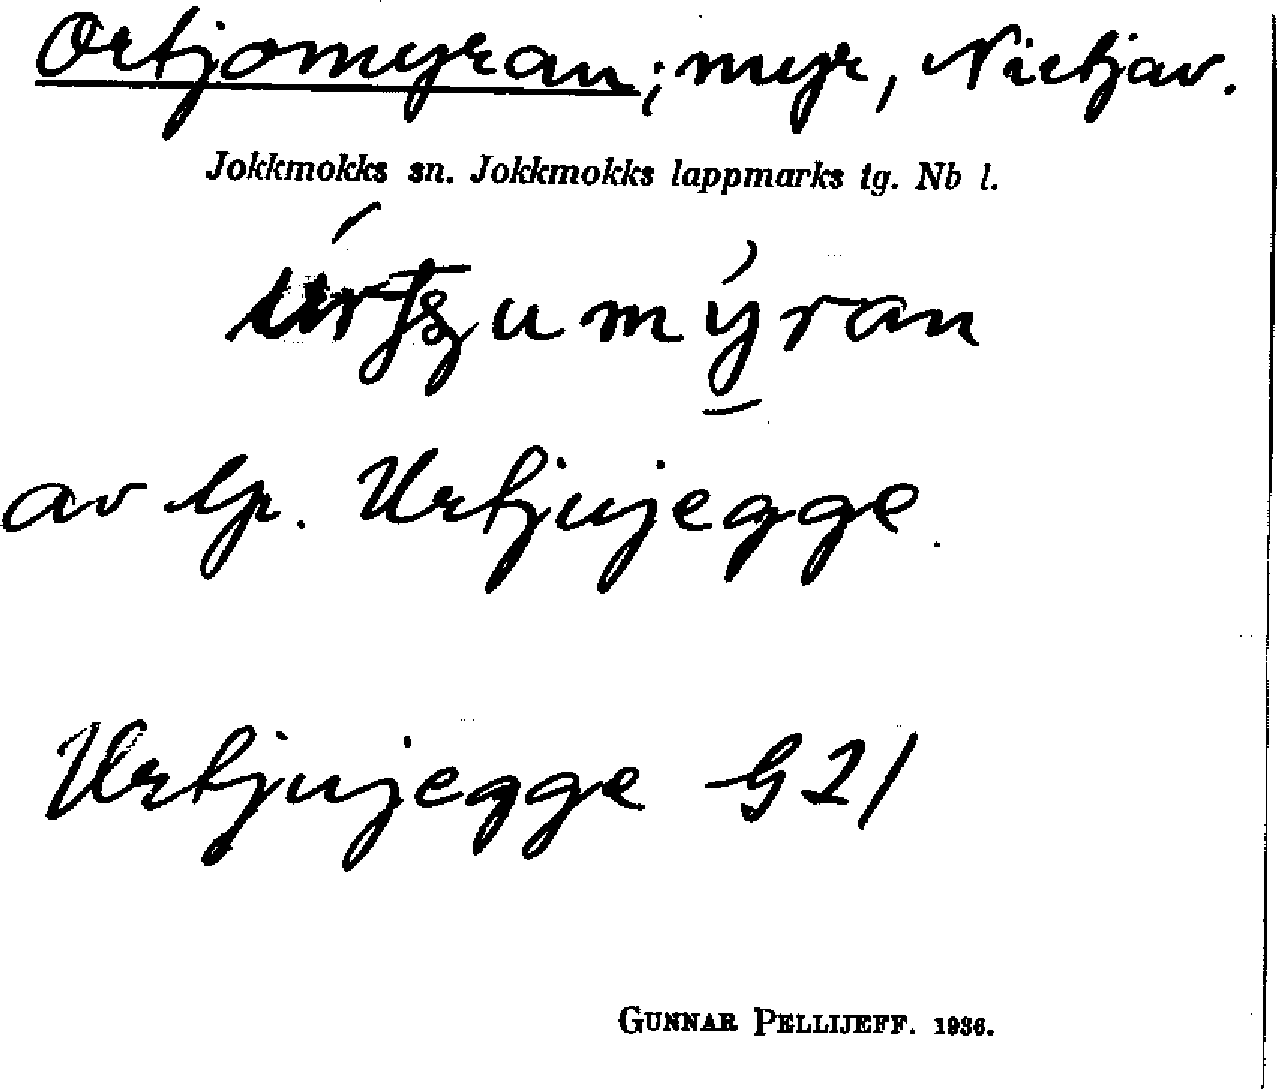 Ortjomyran; myr, Nietjav.
Jokkmokks sn. Jokkmokks lappmarks tg. Nb l.
av lp. Urtjujegge.
Urtjujegge G 21
GUNNAR PELLIJEFF. 1936.